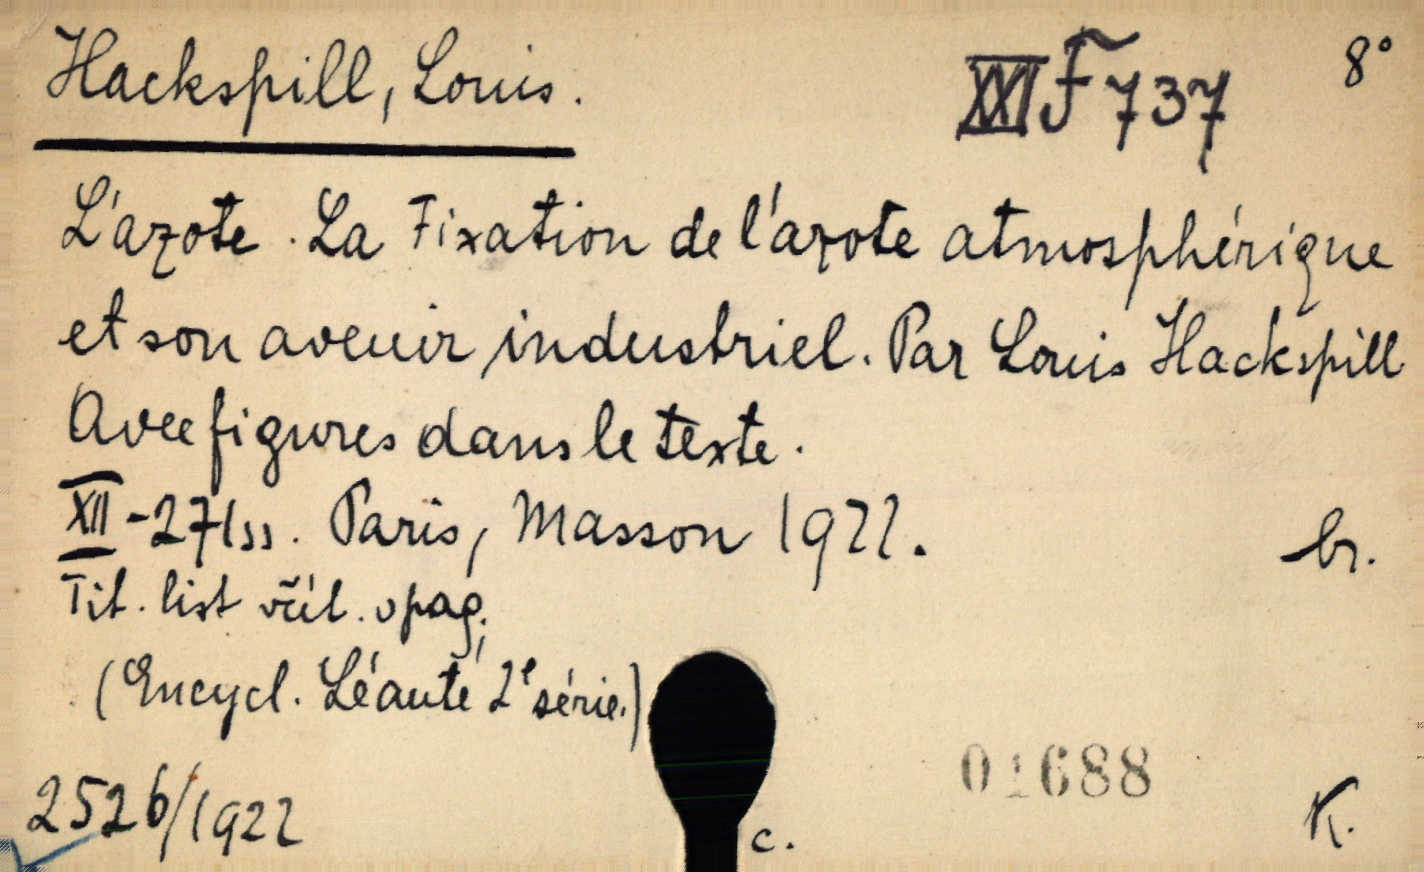 Hackspill, Louis.
XXI F 737
8°
L'azote. La Fixation de l'azote atmosphérique
et son avenir industriel. Par Louis Hackspill
Avec figures dans le texte.
XII-271 ss. Paris, Masson 1922.
br.
Tit. list včít. v pag.
(Encycl. Léauté 2e série.)
01688
2526/1922
c.
K.